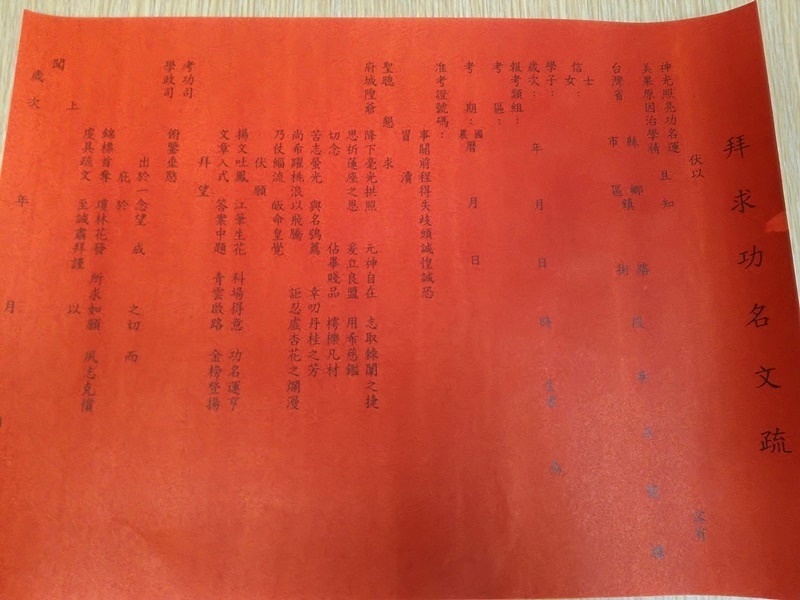 拜求功名文疏
伏以
神光照亮功名運 且知
美果原因治學精
台灣省 縣市 鄉鎮區 路街 段
信士女
學子：
歲次： 年 月 日 時
報考類組：
考區：
考期：國曆農曆 月 日
准考證號碼：
事關前程得失歧頭誠惶誠恐
冒瀆
聖聽 懇求
府城隍爺 降下毫光拱照 元神自在 志取棘闈之捷
思祈蓮座之恩 妄立良盟 用乖慈鑑
切念 佔畢賤品 樗櫟凡材
苦志螢光 與名鶚薦 幸叨丹桂之芳
尚希躍桃浪以飛騰 詎忍虛杏花之爛漫
乃仗緇流 皈命皇覺
伏願
揚文吐鳳 江筆生花 科場得意 功名運亨
文章入式 答案中題 青雲啟路 金榜登揚
拜望
考功司
學政司 術鑒垂愍
出於一念望 成 之切 而
庇於
錦標首奪 瓊林花發 所求如願 夙志克償
虔具疏文 至誠肅拜謹 以
聞 上
歲次 年 月